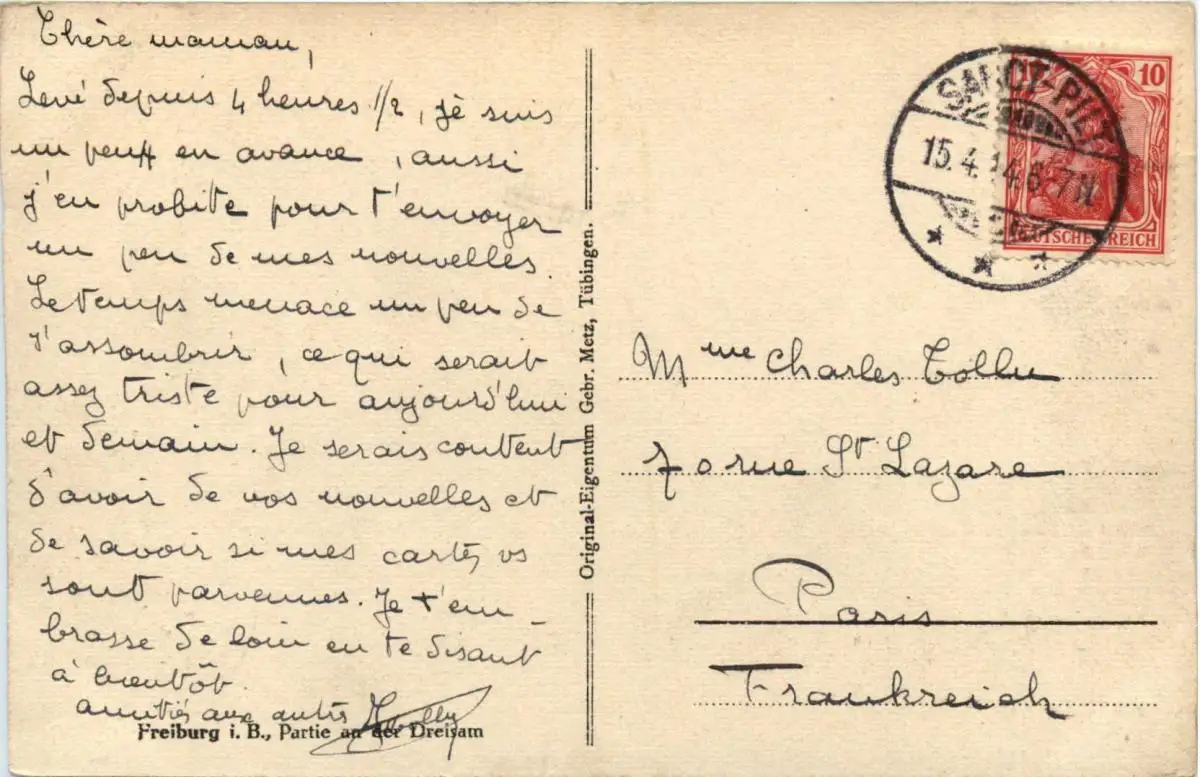 Chère maman,
Levé depuis 4 heures 1/2, je suis
un peu en avance, aussi
j'en profite pour t'envoyer
un peu de mes nouvelles.
Le temps menace un peu de
s'assombrir, ce qui serait
assez triste pour aujourd'hui
et demain. Je serais content
d'avoir de vos nouvelles et
de savoir si mes cartes vs
sont parvenues. Je t'em
brasse de loin en te disant
à bientôt.
amitiés aux autres
Freiburg i. B., Partie an der Dreisam
Original-Eigentum Gebr. Metz, Tübingen.
10
DEUTSCHES REICH
15.4.14 6-7N
Mme Charles Tollu
70 rue St Lazare
Paris
Frankreich